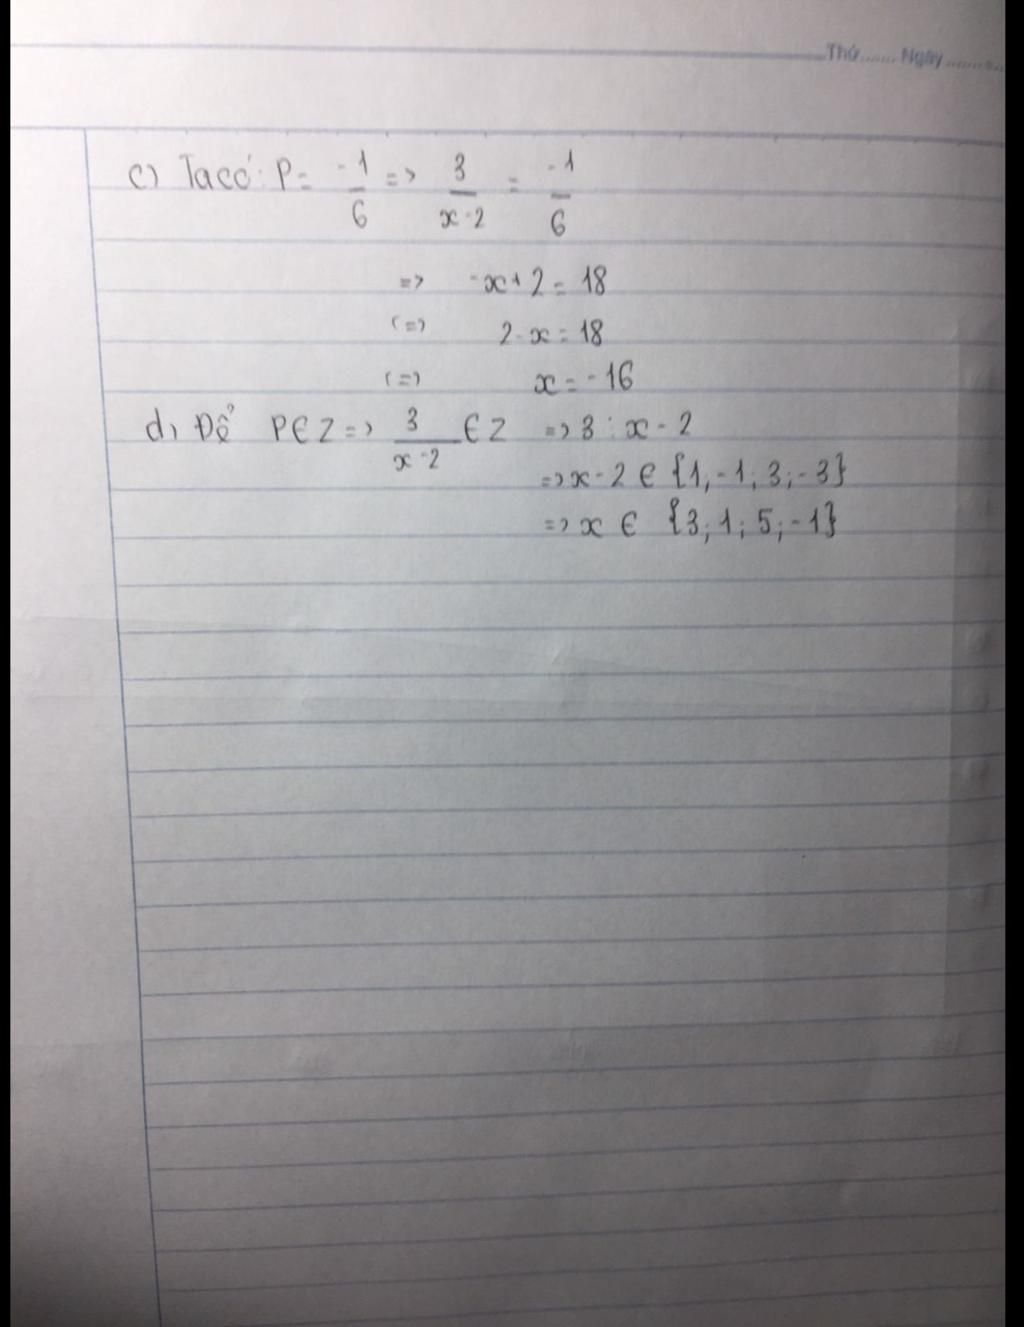 Thứ....... Ngày .........
c) Ta có: P = -1/6 => 3/(x-2) = -1/6
=> -x+2 = 18
(=) 2-x = 18
(=) x = -16
d, Để P ∈ Z => 3/(x-2) ∈ Z => 3 ⋮ x-2
=> x-2 ∈ {1,-1;3;-3}
=> x ∈ {3;1;5;-1}